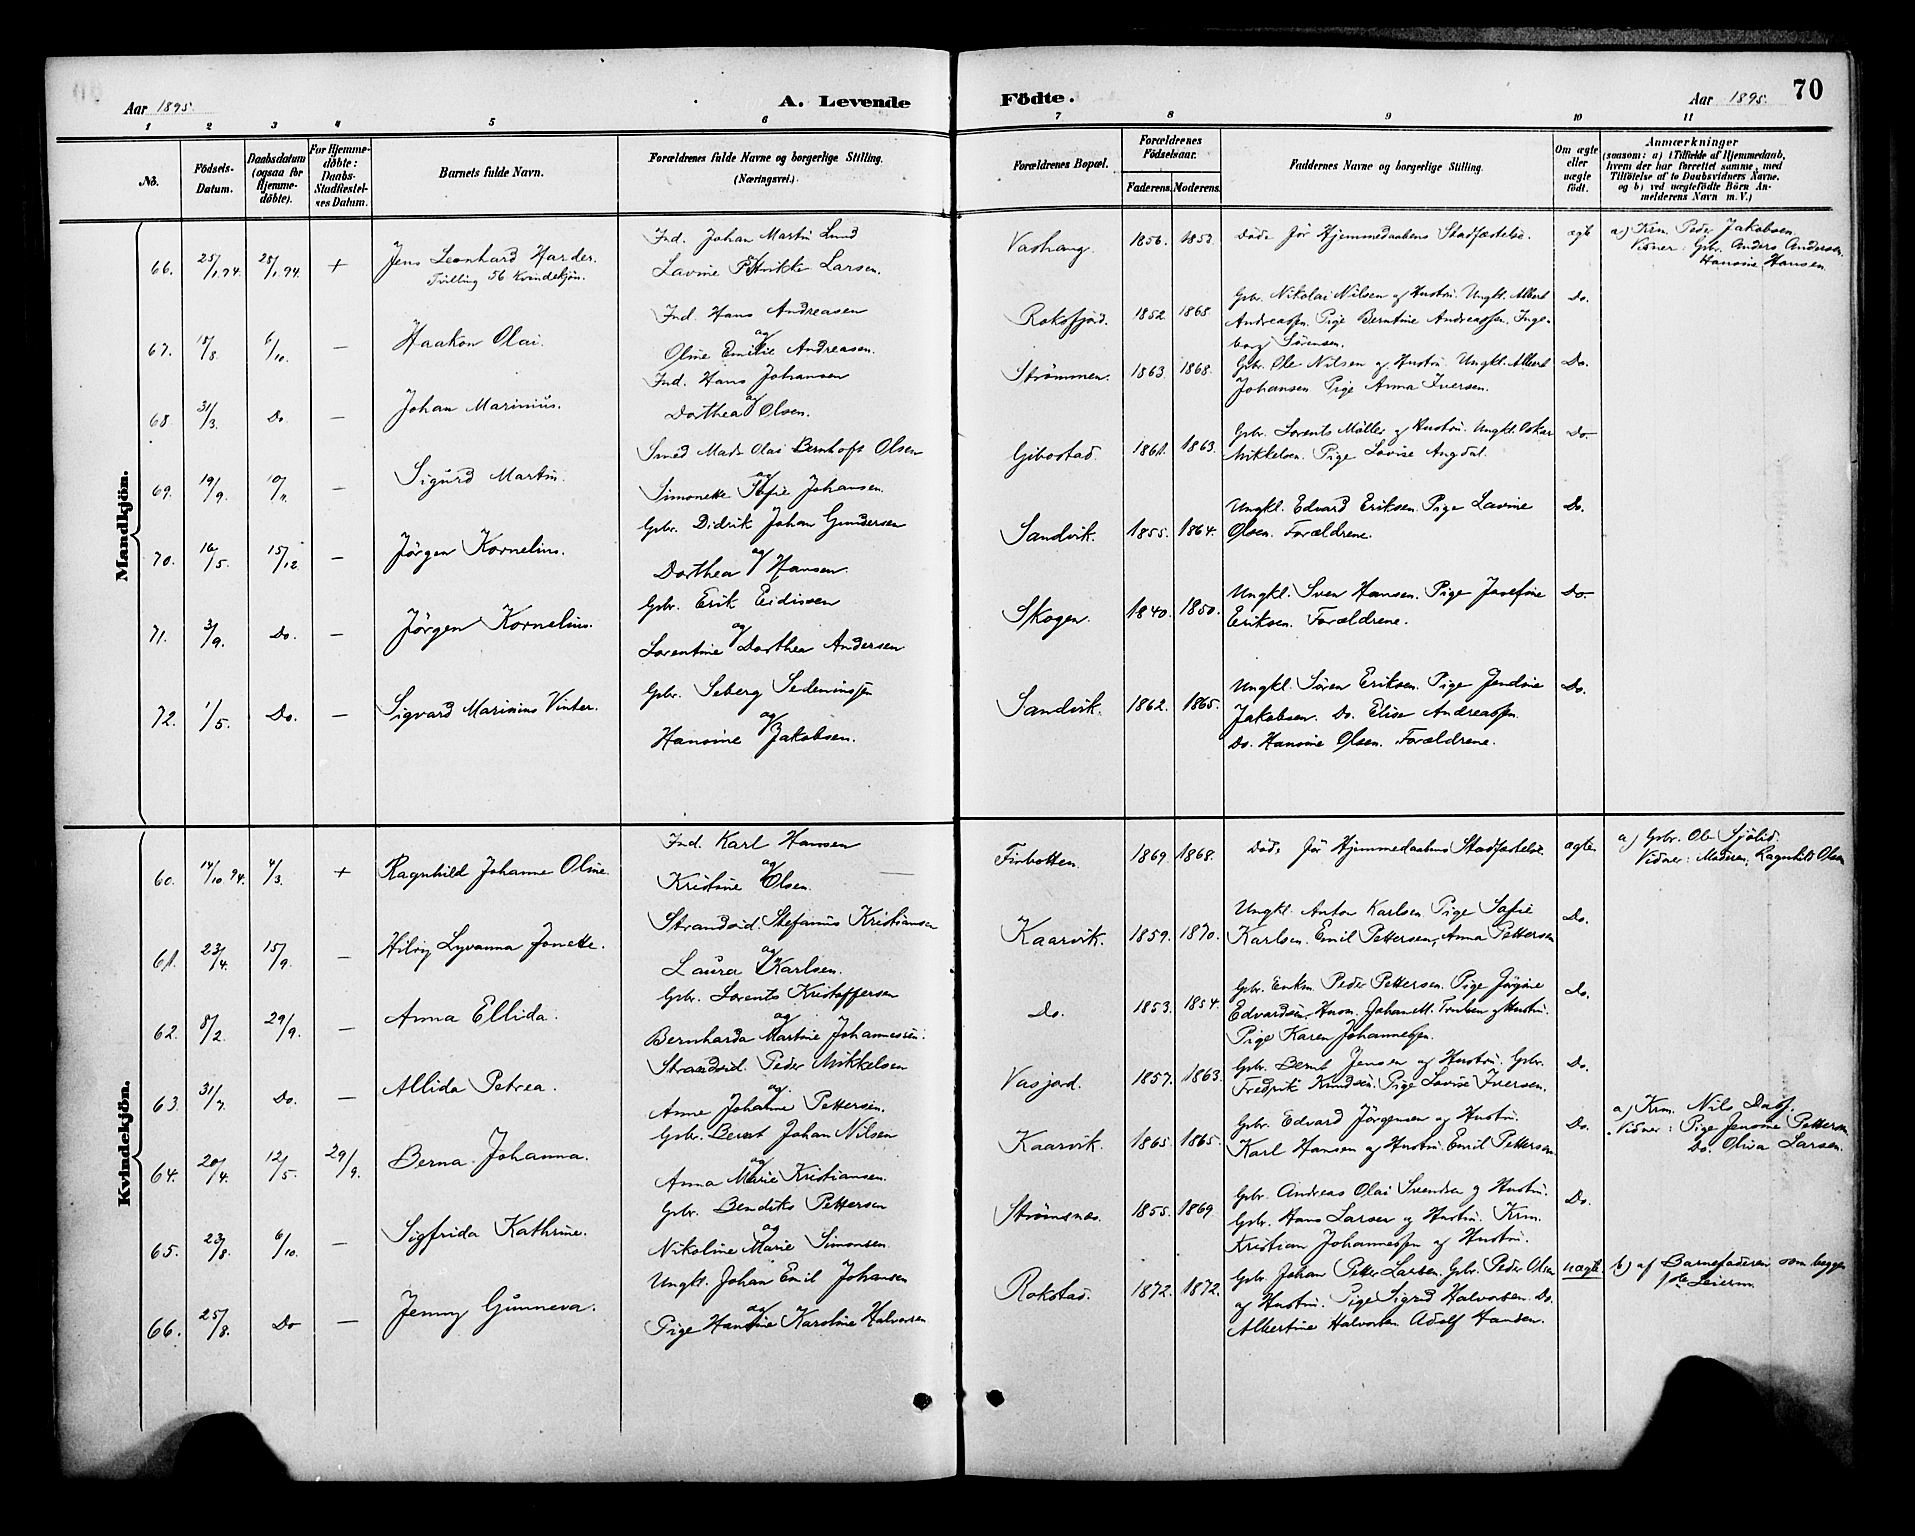 Aar 1895.
A. Levende Födte.
Aar 1895.
70
1 2 3 4 5 6 7 8 9 10 11
No.
Födsels-Datum.
Daabsdatum (ogsaa for Hjemme-döbte).
For Hjemme-döbte: Daabs-Stadfæstel-ses Datum.
Barnets fulde Navn.
Forældrenes fulde Navne og borgerlige Stilling. (Næringsvei.)
Forældrenes Bopæl.
Forældrenes Födselsaar.
Faderens. Moderens.
Faddernes Navne og borgerlige Stilling.
Om ægte eller uægte födt.
Anmærkninger (saasom: a) i Tilfælde af Hjemmedaab, hvem der har forrettet samme, med Tilföielse af to Daabsvidners Navne, og b) ved uægtefödte Börn An-melderens Navn m. V.)
Mandkjön.
66. 25/1.94. 25/1.94. + Jens Leonhard Harder.
Tvilling 56 Kvindekjön.
Ind. Johan Martin Lund
Lavine Henrikke Larsen.
Vashaug. 1856. 1853. Döde för Hjemmedaabens Stadfæstelse. ægte
a) Krm. Peder Jakobsen
Vidner: Gbr. Anders Andersen
Hansine Hansen.
67. 15/8. 6/10. — Haakon Olai.
Ind. Hans Andreasen
og
Oline Emilie Andreasen.
Roksfjord. 1852. 1868
Gbr. Nikolai Nilsen og Hustru. Ungkl. Albert
Andreassen. Pige Berntine Andreassen. Inge-
borg Sörensen.
Do.
68. 31/3. Do. — Johan Marinius.
Ind. Hans Johansen
og
Dorthea Olsen.
Strømmen. 1863. 1868.
Gbr. Ole Nilsen og Hustru. Ungkl. Albert
Johansen Pige Anna Iversen.
Do.
69. 19/9. 10/11. — Sigurd Martin.
Smed Mads Olai Bernhoft Olsen
og
Simonette Sofie Johansen.
Gibostad. 1861. 1863.
Gbr. Lorents Möller og Hustru. Ungkl. Oskar
Mikkelsen. Pige Lovise Angdal.
Do.
70. 16/5. 15/12. — Jörgen Kornelius.
Gbr. Didrik Johan Gundersen
og
Dorthea Hansen.
Sandvik. 1855. 1864.
Ungkl. Edvard Eriksen. Pige Lavine
Olsen. Forældrene.
Do.
71. 3/9. Do. — Jörgen Kornelius.
Gbr. Erik Eidissen
og
Lorentine Dorthea Andersen
Skogen. 1840. 1850.
Ungkl. Sven Hansen. Pige Josefine
Eriksen. Forældrene.
Do.
72. 1/5. Do. — Sigvard Marinius Vinter.
Gbr. Seberg Sedeniussen
og
Hansine Jakobsen.
Sandvik. 1862. 1865.
Ungkl. Sören Eriksen. Pige Jendine
Jakobsen. Do. Elise Andreassen.
Do. Hansine Olsen. Forældrene.
Do.
Kvindekjön.
60. 14/10.94. 4/3. + Ragnhild Johanne Oline
Ind. Karl Hansen
og
Kristine Olsen.
Finbotten. 1869. 1868. Döde för Hjemmedaabens Stadfæstelse. ægte
a) Gbr. Ole Sjölid.
Vidner: Moderen, Ragnhild Olsen
61. 23/4. 15/9. — Hilvig Lyvanna Jonette.
Strandsid. Stefanus Kristiansen
og
Laura Karlsen.
Kaarvik. 1859. 1870.
Ungkl. Anton Karlsen. Pige Sofie
Karlsen. Emil Pettersen, Anna Pettersen
Do.
62. 8/2. 29/9. — Anna Ellida.
Gbr. Lorents Kristoffersen
og
Bernharda Martine Johannessen.
Do. 1853. 1854.
Gbr. Enkm. Peder Pettersen. Pige Jörgine
Edvardsen, Johan M. og Hustru.
Pige Karen Johannessen.
Do.
63. 31/7. Do. — Allida Petrea.
Strandsid. Peder Mikkelsen
og
Anne Johanne Pettersen.
Vasjord. 1857. 1863.
Gbr. Bernt Jensen og Hustru. Gbr.
Fredrik Knudsen. Pige Lovise Iversen.
Do.
64. 20/4. 12/5. 29/9. Berna Johanna.
Gbr. Bernt Johan Nilsen
og
Anna Marie Kristiansen.
Kaarvik. 1865. 1865.
Gbr. Edvard Jörgensen og Hustru.
Karl Hansen og Hustru. Emil Pettersen
Do.
a) Krm. Nils Dass.
Vidner: Pige Jensine Pettersen
Do. Oliva Larsen.
65. 23/8. 6/10. — Sigfrida Kathrine.
Gbr. Bendiks Pettersen
og
Nikoline Marie Simonsen.
Strömsnes. 1855. 1869.
Gbr. Andreas Olai Svendsen og Hustru.
Gbr. Hans Larsen og Hustru. Krm.
Kristian Johannessen og Hustru.
Do.
66. 25/8. Do — Jenny Gunneva.
Ungkl. Johan Emil Johansen
og
Pige Hansine Karoline Halvorsen
Rokstad. 1872. 1872.
Gbr. Johan Petter Larsen. Gbr. Peder Olsen
og Hustru. Pige Sigrid Halvorsen. Do.
Albertine Halvorsen. Adolf Hansen.
uægte
b) af Barnefaderen som begges
1ste Leierm.